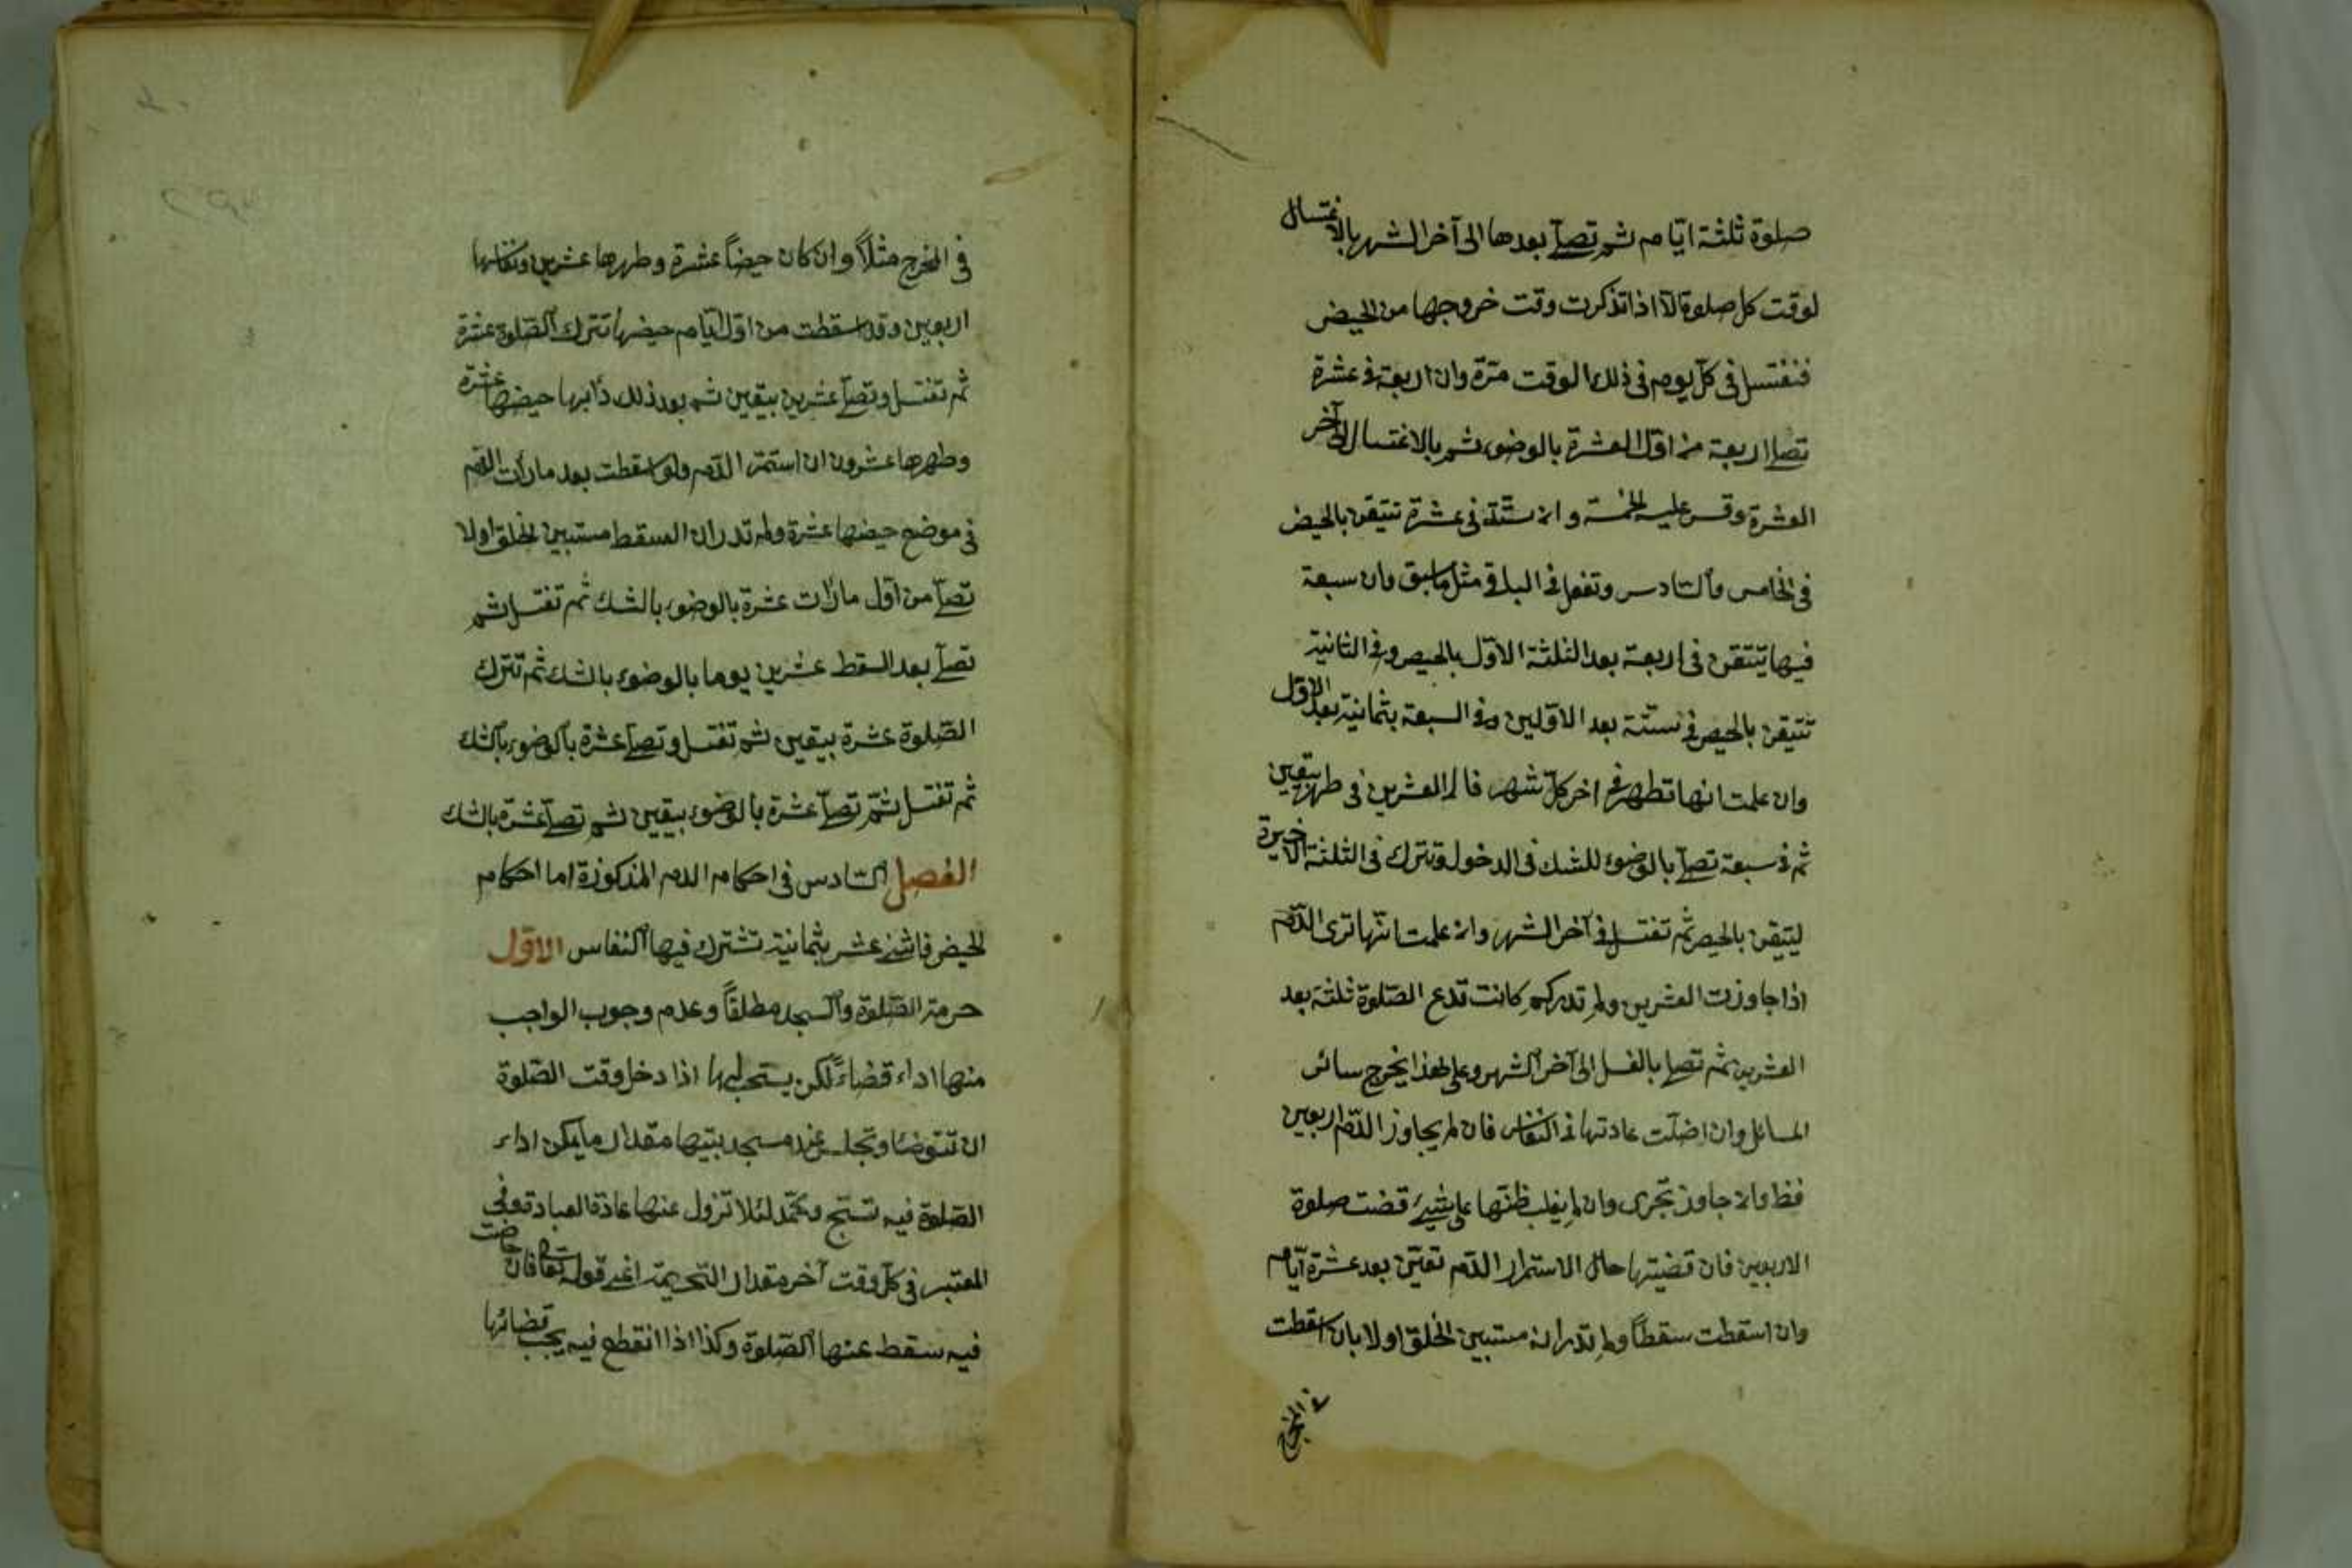 صلوة ثلثة ايام ثم تصلّ بعدها الى آخر الشهر بالاغتسال
لوقت كل صلوة الّا اذا تذكرت وقت خروجها من الحيض
فتغتسل فى كلّ يوم فى ذلك الوقت مرّة وان اربعة فى عشرة
تصلى اربعة من اوّل العشرة بالوضوء ثم بالاغتسال الى آخر
العشرة وقس عليه الخمسة وان ستّة فى عشرة تتيقن بالحيض
فى الخامس والسّادس وتفعل فى الباقى مثل ما سبق وان سبعة
فيها تتيقن فى اربعة بعد الثلثة الاوّل بالحيض وفى الثانية
تتيقن بالحيض فى ستّة بعد الاوّلين وفى التسعة بثمانية بعد الاوّل
وان علمت انها تطهر فى اخر كلّ شهر فالى العشرين فى طهر بيقين
ثم فى سبعة تصلّ بالوضوء للشك فى الدخول وتترك فى الثلثة الاخيرة
ليتيقن بالحيض ثم تغتسل فى آخر الشهر وان علمت انّها ترى الدّم
اذا جاوزت العشرين ولم تدركم كانت تدع الصّلوة ثلثة بعد
العشرين ثم تصلى بالغسل الى آخر الشهر وعلى هذا يخرج سائر
المسائل وان اضلّت عادتها فى النّفاس فان لم يجاوز الدّم اربعين
فظ وان جاوز تتحرى وان لم يغلب ظنّها على شيئ قضت صلوة
الاربعين فان قضيتها حال الاستمرار الدّم تعيّن بعد عشرة ايّام
وان اسقطت سقطاً ولم تدر انه مستبين الخلق اولا بان اسقطت
فى المخرج
فى المخرج مثلاً وان كان حيضاً عشرة وطهرها عشرين ونفاسها
اربعين وقد اسقطت من اوّل ايّام حيضها تترك الصّلوة عشرة
ثم تغتسل وتصلّ عشرين بيقين ثم بعد ذلك دأبها حيضها عشرة
وطهرها عشرون ان استمرّ الدّم ولو اسقطت بعد ما رأت الدّم
فى موضع حيضها عشرة ولم تدر ان السقط مستبين الخلق اولا
تصلّ من اوّل ما رأت عشرة بالوضوء بالشك ثم تغتسل ثم
تصلّ بعد السقط عشرين يوما بالوضوء بالشك ثم تترك
الصّلوة عشرة بيقين ثم تغتسل وتصلّ عشرة بالوضوء بالشك
ثم تغتسل ثمّ تصلّ عشرة بالوضوء بيقين ثم تصلّ عشرة بالشك
الفصل السّادس فى احكام الدم المذكورة اما احكام
الحيض فاثنى عشر بثمانية تشترك فيها النّفاس الاوّل
حرمة الصّلوة والسجد مطلقاً وعدم وجوب الواجب
منها اداء قضاءً لكن يستحب لها اذا دخل وقت الصّلوة
ان تتوضأ وتجلس عند مسجد بيتها مقدار ما يمكن اداء
الصّلوة فيه تسبّح وتحمّد لئلا تزول عنها عادة العبادة وفى
المعتبر فى كلّ وقت آخر مقدار التحريمة اغنى قوله تعا فان حاضت
فيه سقط عنها الصّلوة وكذا اذا انقطع فيه يجب قضائها